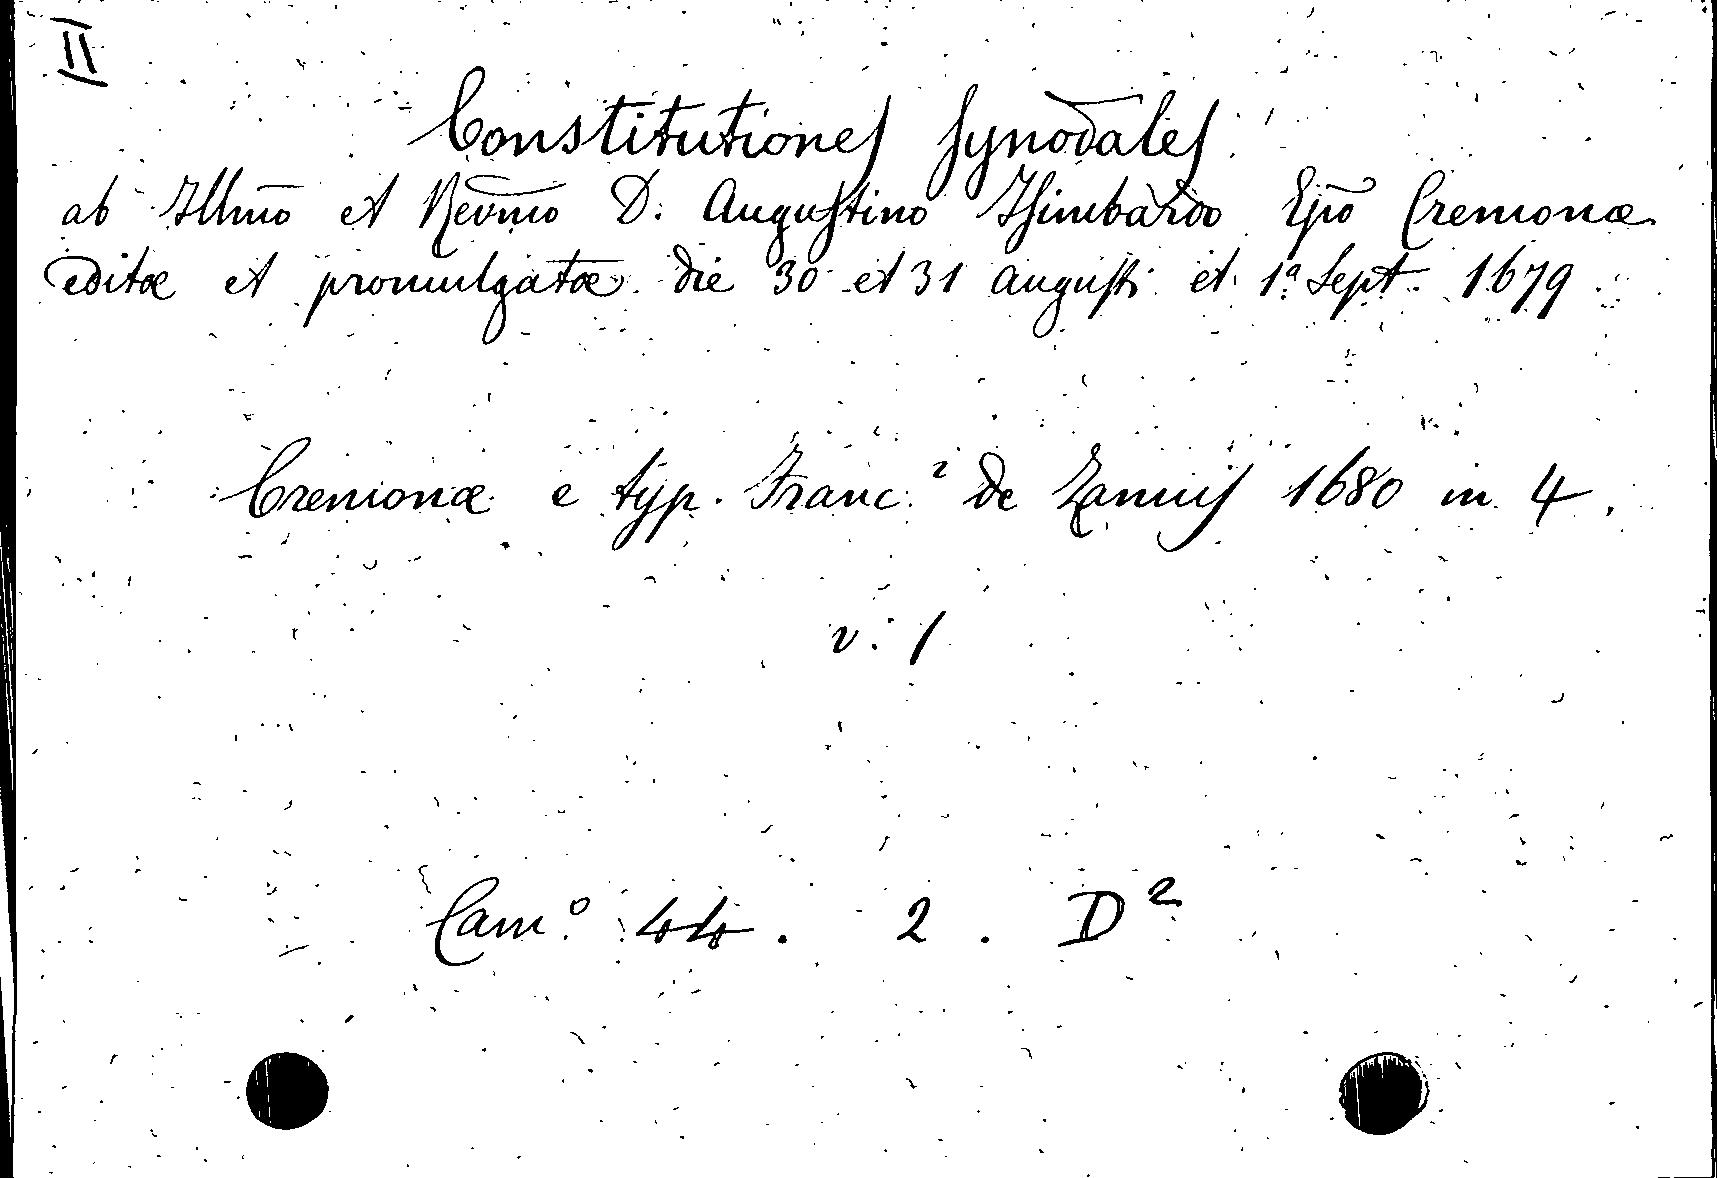 II
Constitutiones Synodales
ab Illm̄o et Revm̄o D. Augustino Isimbardo Ep̄o Cremonæ
editæ et promulgatæ die 30 et 31 augusti et 1ª Sept. 1679
Cremonæ e typ. Franc.i de Zannis 1680 in 4.
v. 1
Cam.º 44. 2. D²